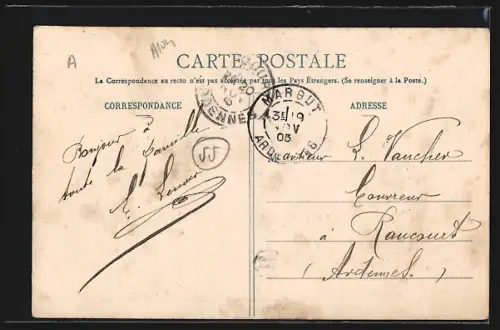 A
CARTE POSTALE
La Correspondance au recto n'est pas acceptée par tous les Pays Étrangers. (Se renseigner à la Poste.)
CORRESPONDANCE
ADRESSE
MARGUT
NOV
05
ARDENNES
Bonjour à
toute la famille
E.
55
Monsieur G. Vaucher
Couvreur
à Raucourt
(Ardennes.)